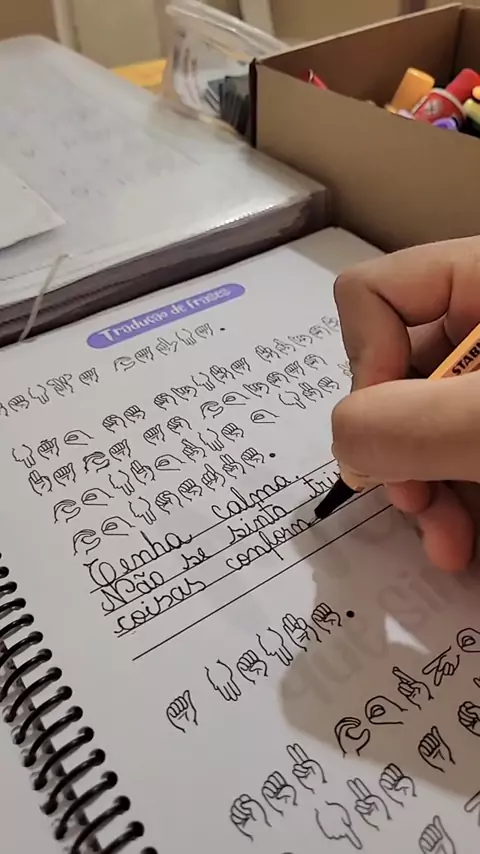 Tradução de frases
Tenha calma.
Não se sinta
coisas conform
STAB